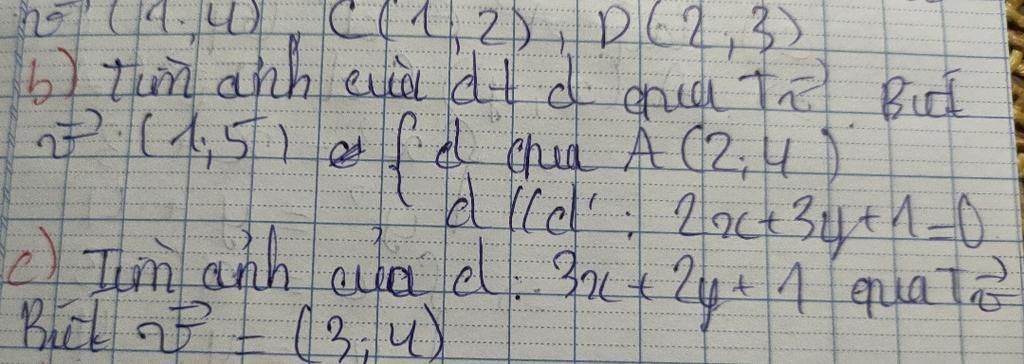 v⃗ (1; 4) C(1, 2), D(2, 3)
b) Tìm ảnh của đt d qua Tv⃗ Biết
v⃗ (1; 5) { d qua A(2; 4)
d // d': 2x + 3y + 1 = 0
c) Tìm ảnh của d: 3x + 2y + 1 qua Tv⃗
Biết v⃗ = (3; 4)